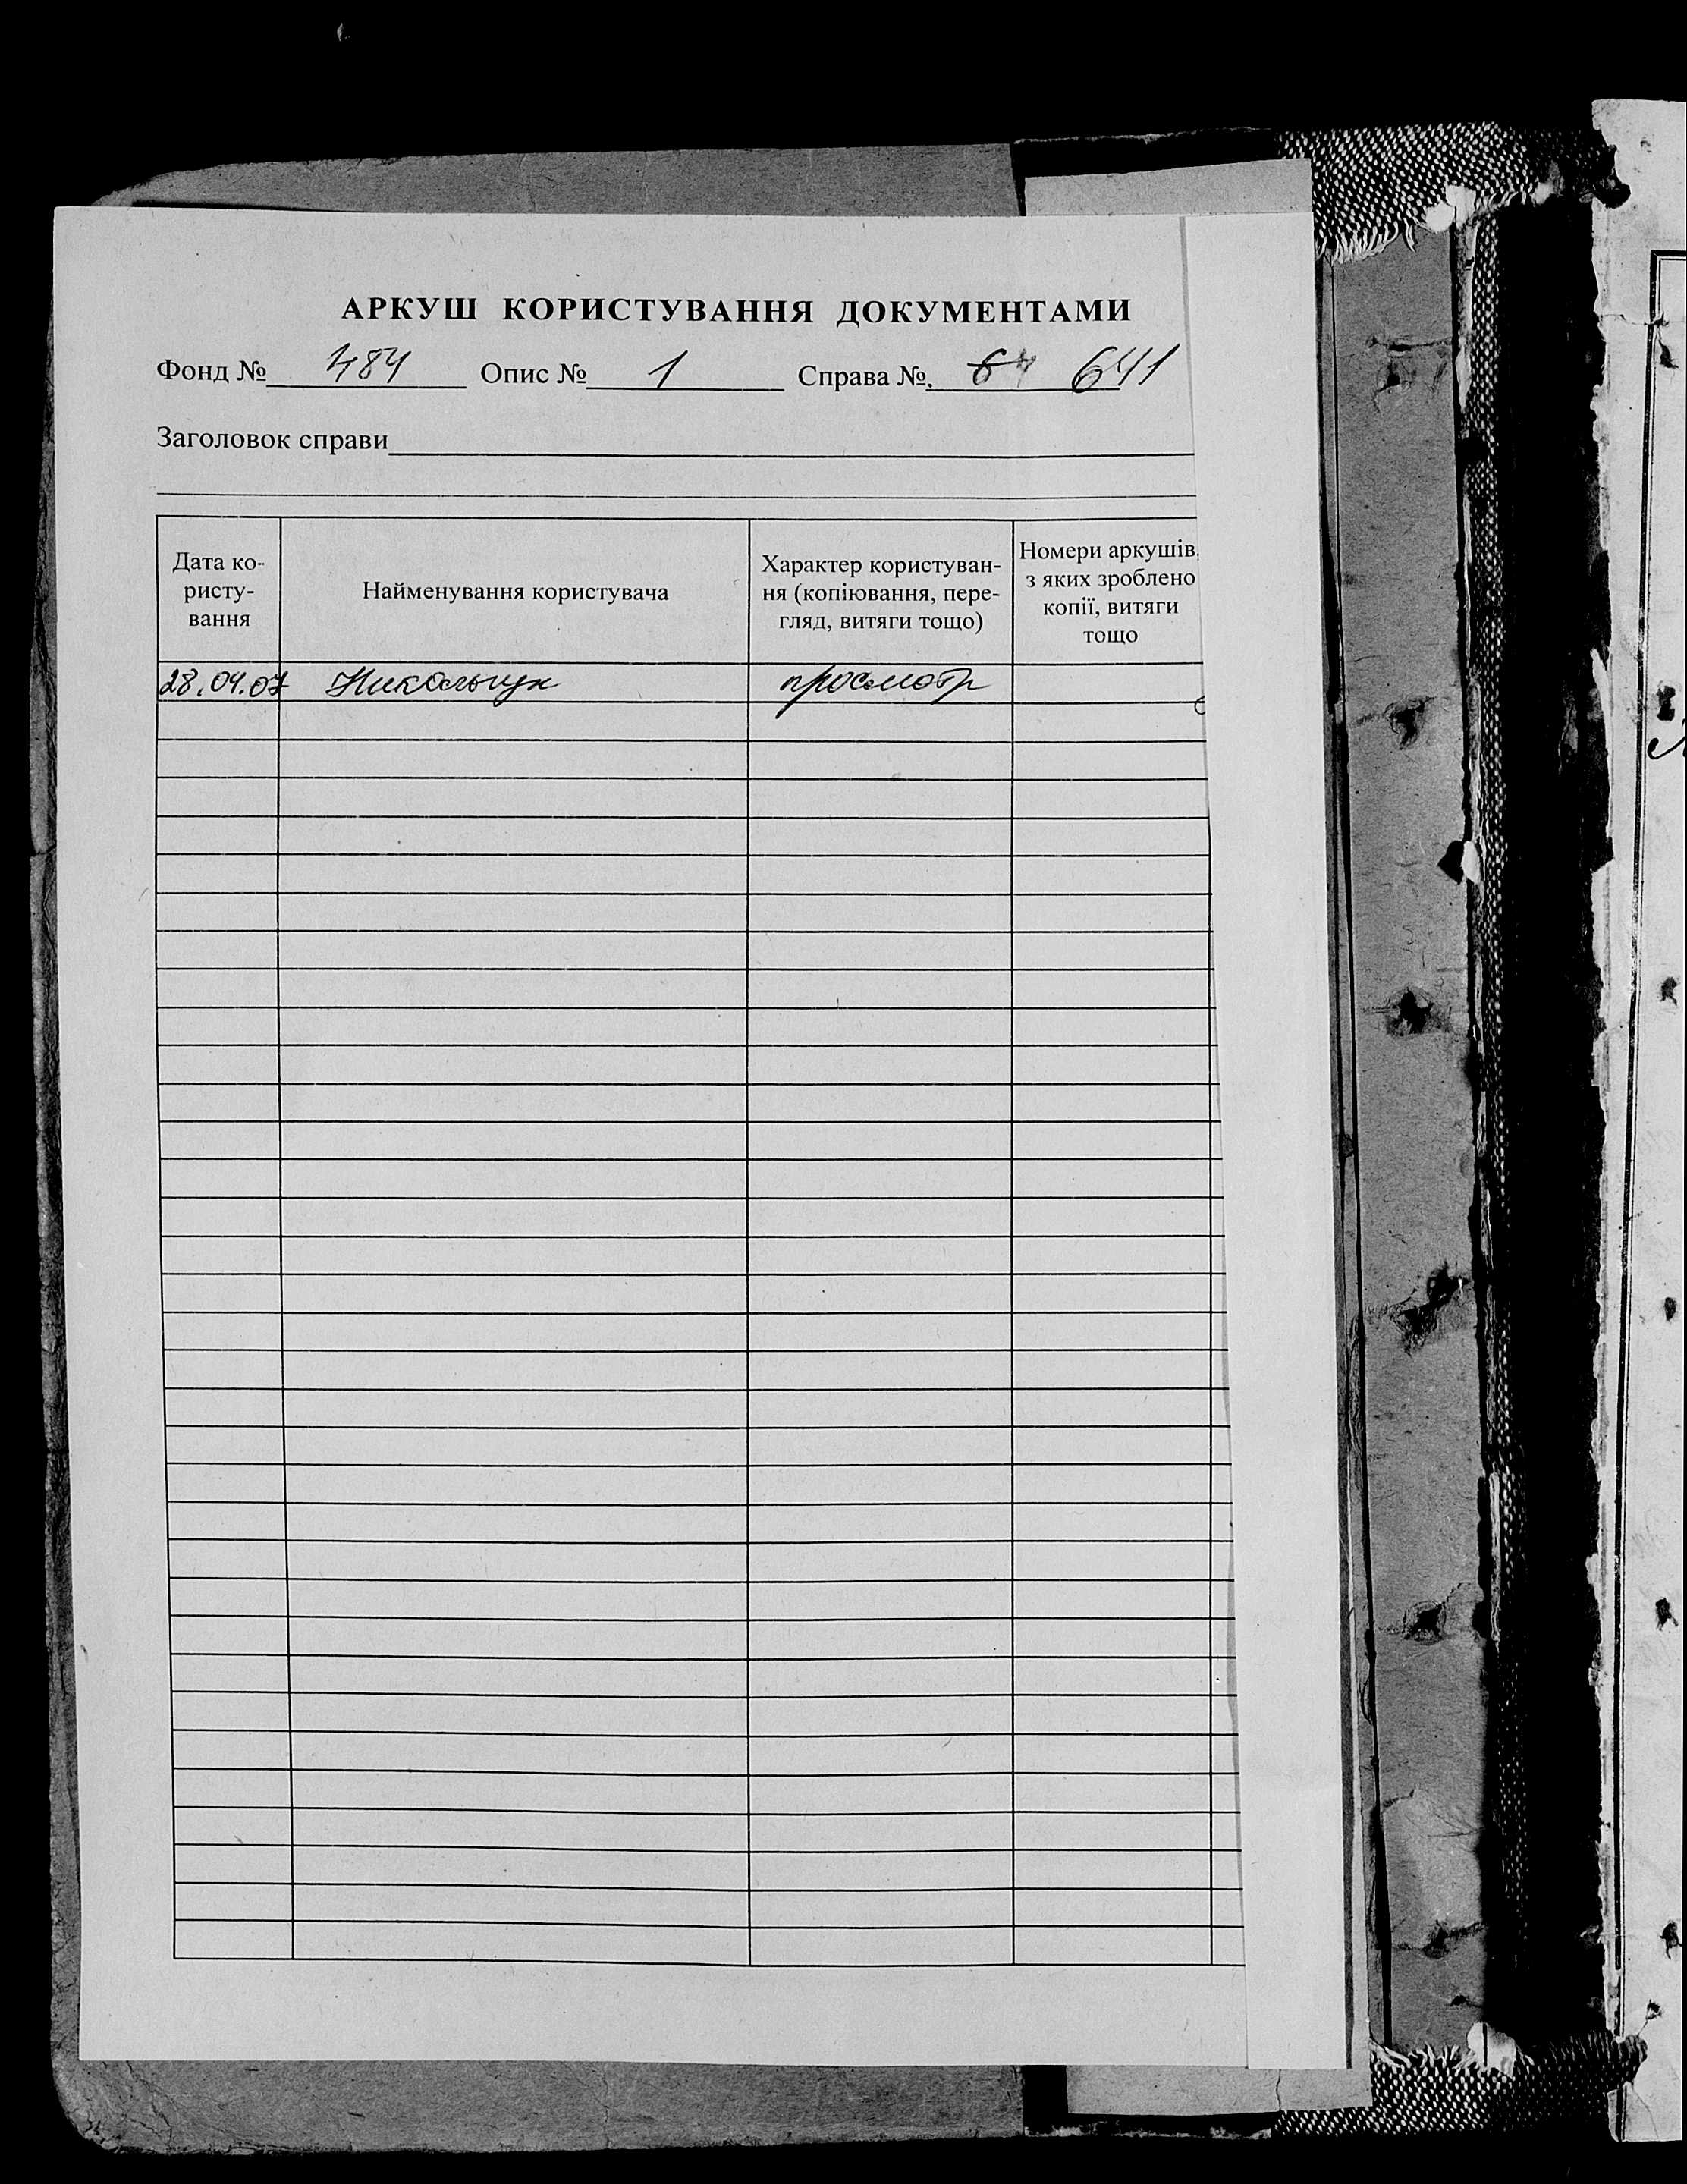 АРКУШ КОРИСТУВАННЯ ДОКУМЕНТАМИ
Фонд № 484 Опис № 1 Справа №. 64 641
Заголовок справи
Дата ко-
ристу-
вання
Найменування користувача
Характер користуван-
ня (копіювання, пере-
гляд, витяги тощо)
Номери аркушів,
з яких зроблено
копії, витяги
тощо
28.04.07 Никольчук просмотр